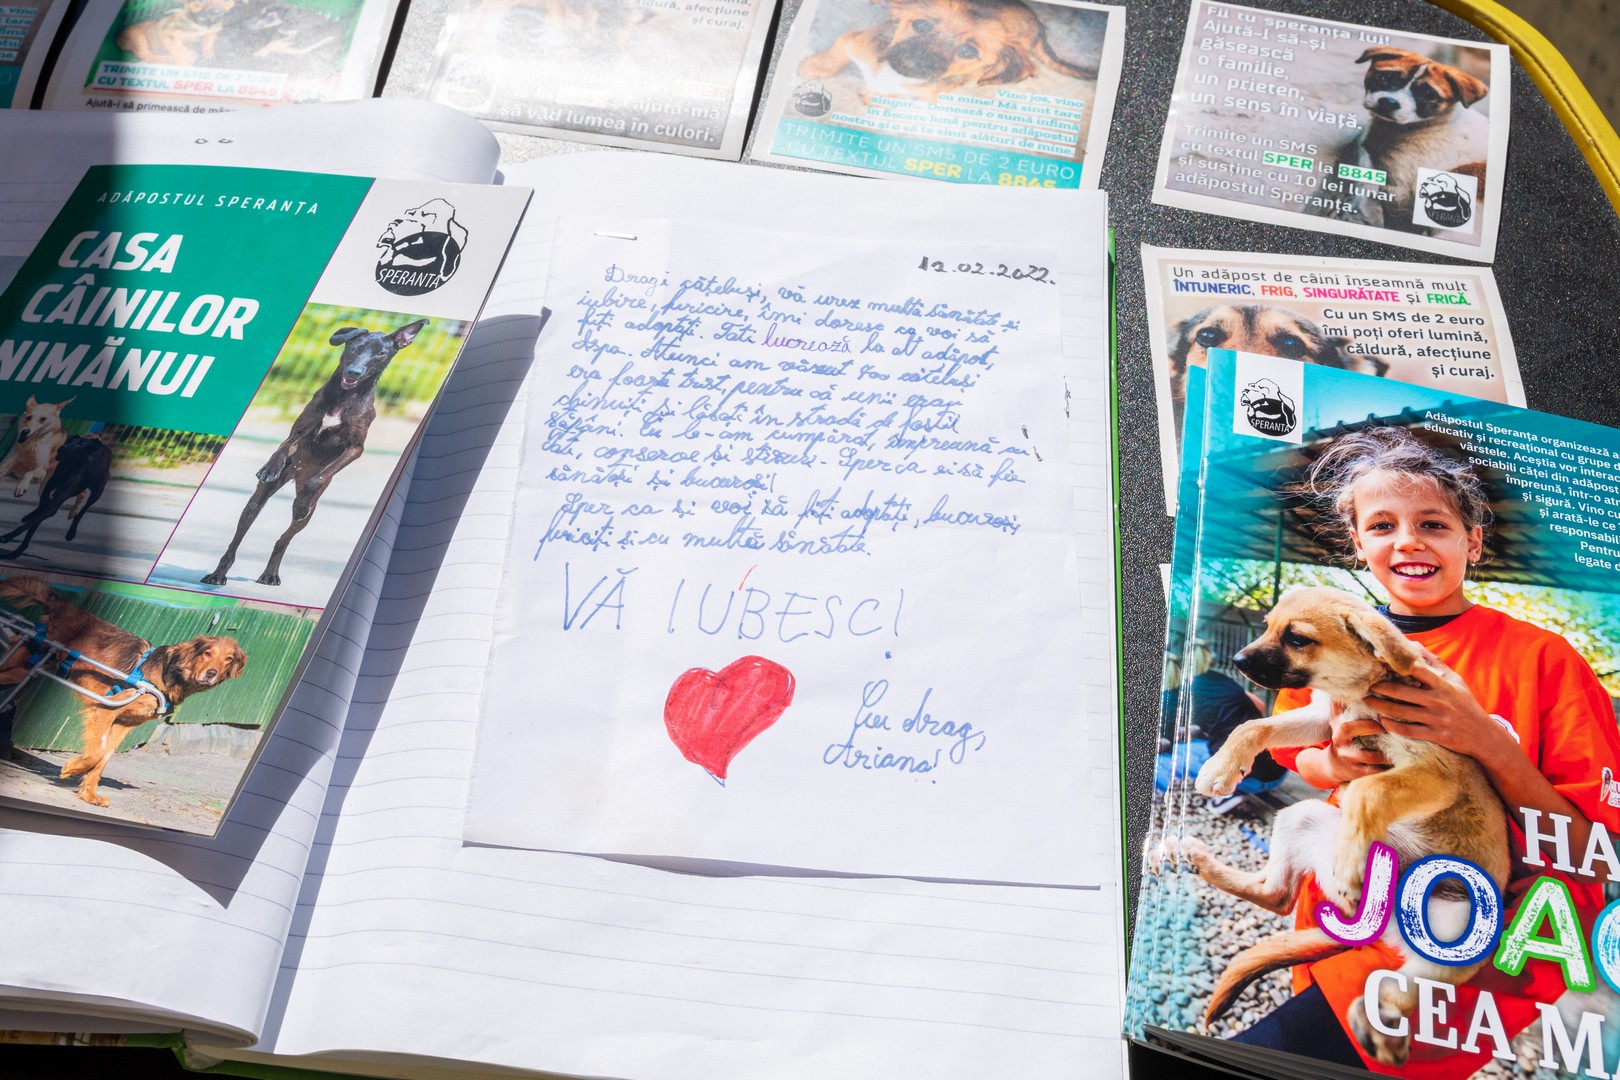 TRIMITE UN SMS DE 2 EURO
CU TEXTUL SPER LA 8845
Ajută-i să primească de
căldură, afecțiune
și curaj.
ajută-mă
să văd lumea în culori.
Vino jos, vino
cu mine! Mă simt tare
singur... Donează o sumă infimă
în fiecare lună pentru adăpostul
nostru și o să te simt alături de mine.
TRIMITE UN SMS DE 2 EURO
CU TEXTUL SPER LA 8845
Fii tu speranța lui!
Ajută-l să-și
găsească
o familie,
un prieten,
un sens în viață.
Trimite un SMS
cu textul SPER la 8845
și susține cu 10 lei lunar
adăpostul Speranța.
SPERANȚA
Un adăpost de câini înseamnă mult
ÎNTUNERIC, FRIG, SINGURĂTATE și FRICĂ.
Cu un SMS de 2 euro
îmi poți oferi lumină,
căldură, afecțiune
și curaj.
ADĂPOSTUL SPERANȚA
CASA
CÂINILOR
NIMĂNUI
SPERANȚA
12.02.2022.
Dragi cățeluși, vă urez multă sănătate și
iubire, fericire, îmi doresc ca voi să
fiți adoptați. Tati lucrează la alt adăpost,
Aspa. Atunci am văzut 400 cățeluși
era foarte trist, pentru că unii erau
chinuiți și lăsați în stradă de foștii
stăpâni. Eu le-am cumpărat, împreună cu
tati, conserve și Sper ca ei să fie
sănătoși și bucuroși!
Sper ca și voi să fiți adoptați, bucuroși,
fericiți și cu multă sănătate.
VĂ IUBESC!
Cu drag,
Ariana!
SPERANȚA
Adăpostul Speranța organizează
educativ și recreațional cu grupe
vârstele. Aceștia vor
sociabili căței din adăpost
împreună, într-o
și sigură. Vino cu
și arată-le ce
Pentru
legate
HA
JOA
CEA M